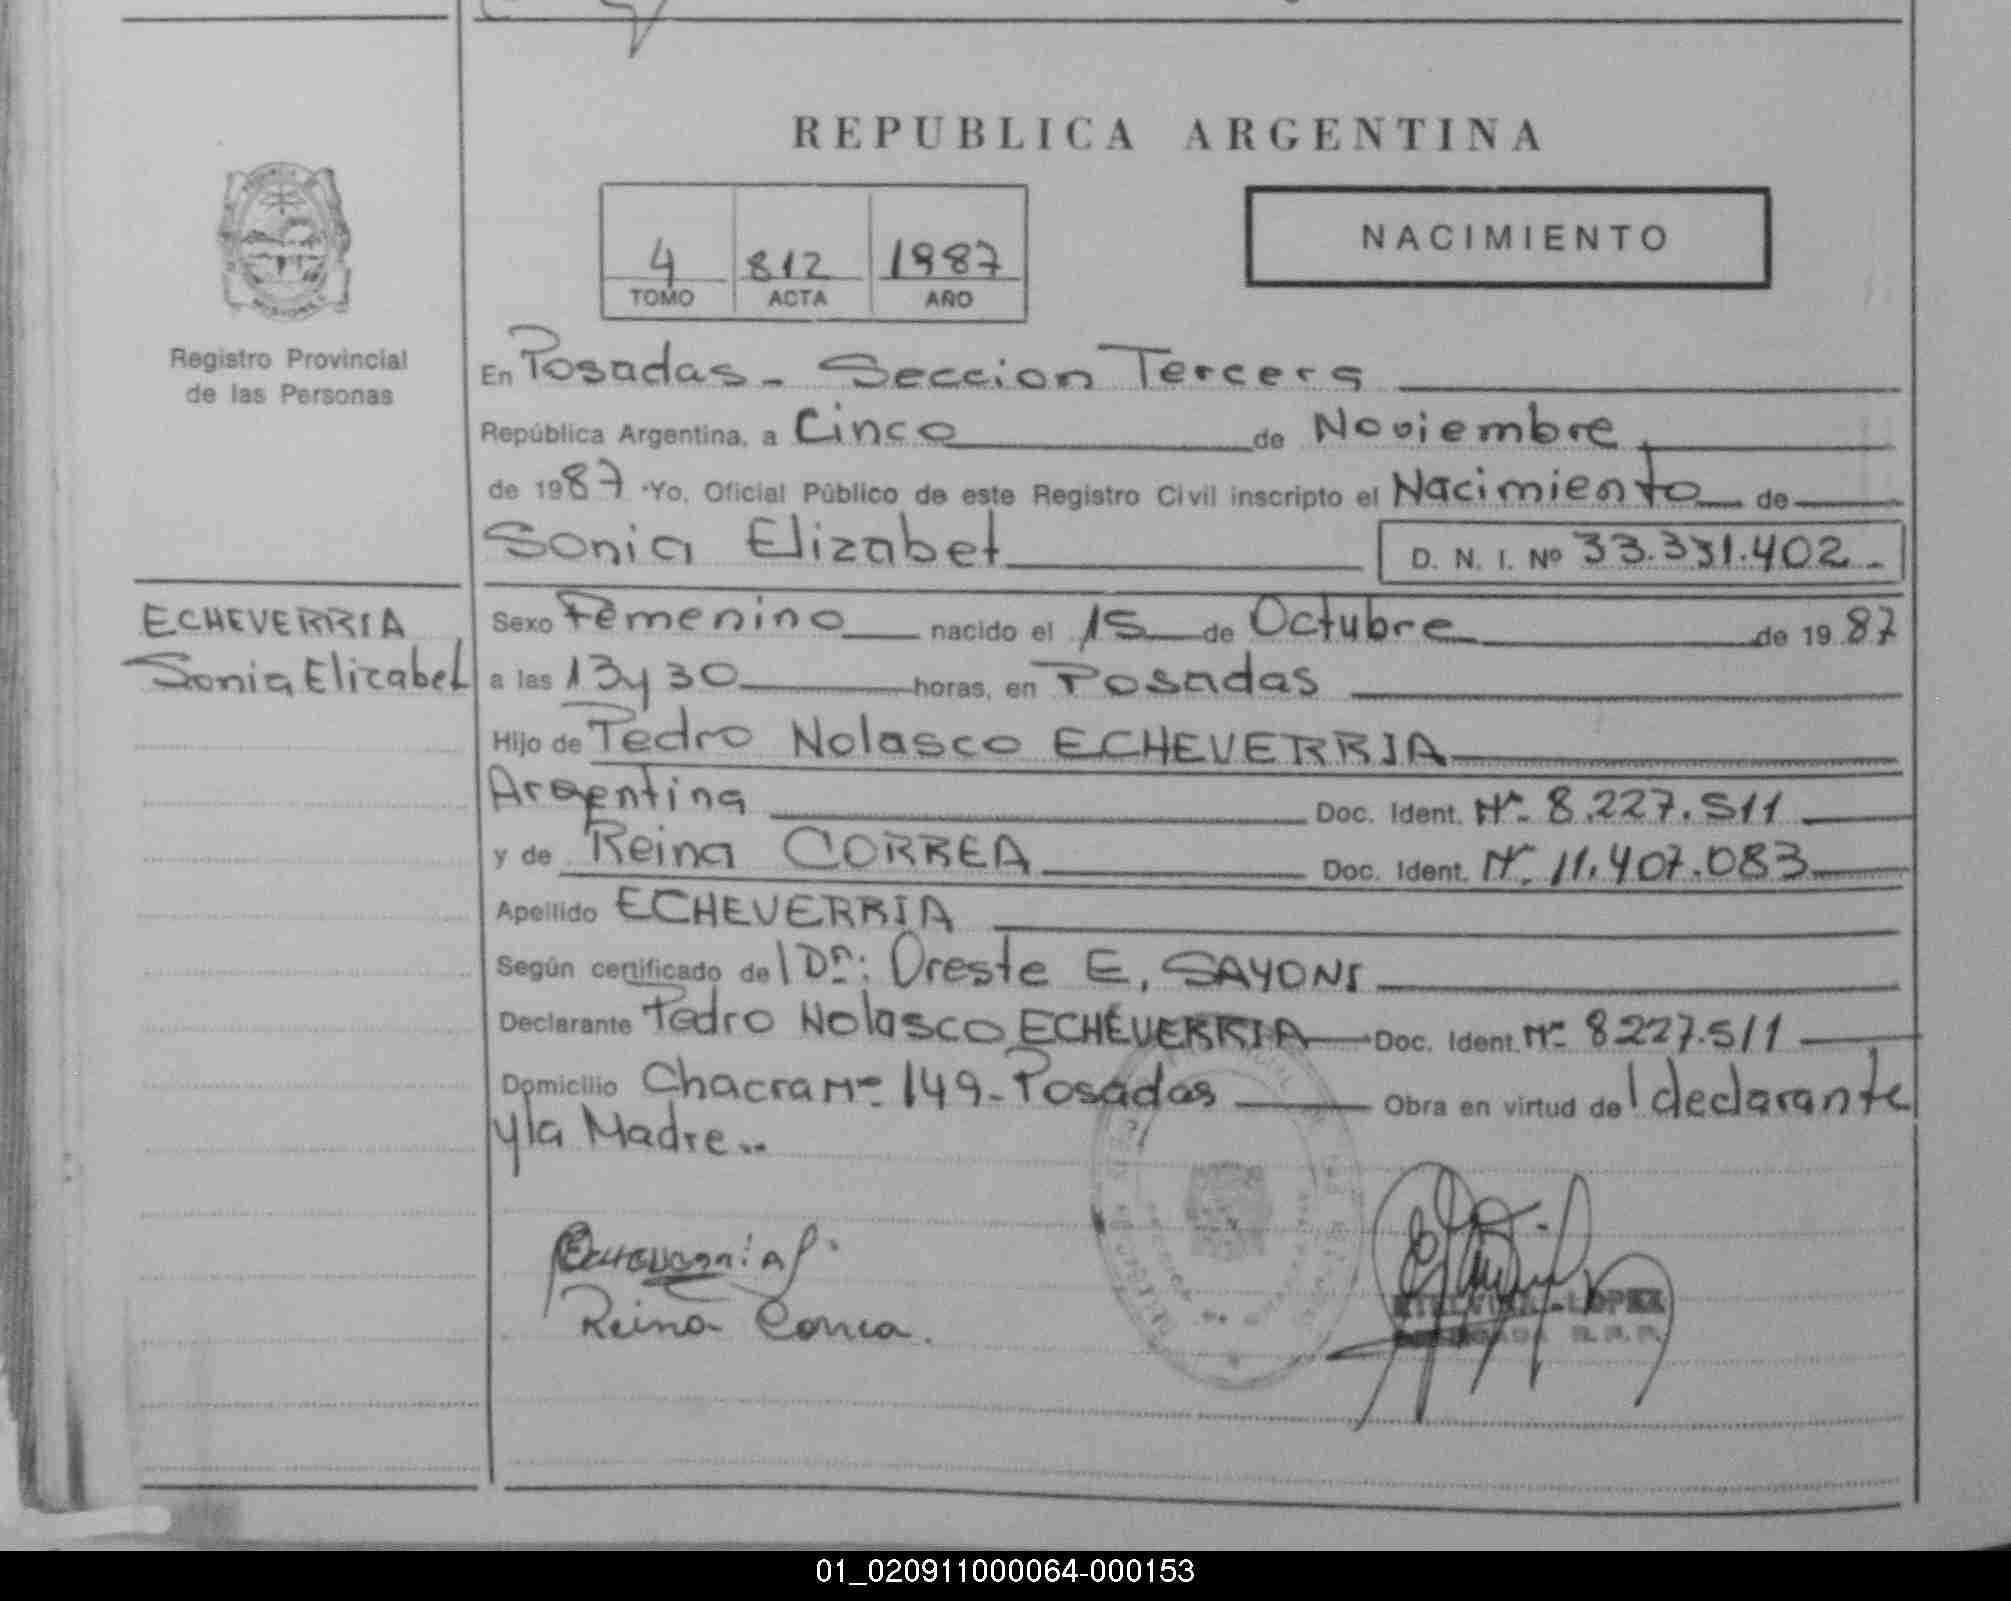 REPUBLICA ARGENTINA
4 812 1987
TOMO ACTA AÑO
NACIMIENTO
Registro Provincial
de las Personas
En Posadas - Seccion Tercera
República Argentina, a Cinco de Noviembre
de 1987 Yo, Oficial Público de este Registro Civil inscripto el Nacimiento de
Sonia Elizabet D. N. I. Nº 33.331.402.-
ECHEVERRIA
Sonia Elizabet
Sexo Femenino nacido el 15 de Octubre de 1987
a las 13 y 30 horas, en Posadas
Hijo de Pedro Nolasco ECHEVERRIA
Argentina Doc. Ident. Nº 8.227.511
y de Reina CORREA Doc. Ident. Nº 11.407.083
Apellido ECHEVERRIA
Según certificado del Dr: Oreste E. SAYONS
Declarante Pedro Nolasco ECHEVERRIA Doc. Ident. Nº 8227.511
Domicilio Chacra Nº 149 - Posadas Obra en virtud del declarante
y la Madre..
Echeverria P.
Reina Correa.
LOPEZ
01_020911000064-000153